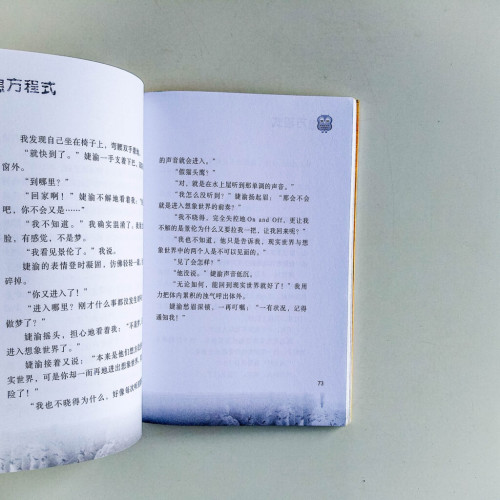 想方程式
我发现自己坐在椅子上，弯腰双手
“就快到了。”婕渝一手支着下巴，
窗外。
“到哪里？”
“回家啊！”婕渝不解地看着我：
吧，你不会又是……”
“我不知道。”我确实混淆了，
脸，有感觉，不是梦。
“我看见景伦了！”我说。
婕渝的表情登时凝固，仿佛轻轻一
碎掉。
“你又进入了！”
“进入哪里？刚才什么事都没发生
做梦了？”
婕渝摇头，担心地看着我：“不是
进入想象世界了。”
婕渝接着又说：“本来是他们想方
实世界，可是你却一而再地进出想象
险了！”
“我也不晓得为什么，好像每次
的声音就会进入。”
“假猫头鹰？”
“对，就是在水上屋听到那单调的声音。”
“我怎么没听到？”婕渝扬起眉：“那会不会
就是进入想象世界的前奏？”
“我不晓得，完全失控地 On and Off，更让我
不解的是景伦为什么又要拉我一把，让我回来呢？”
“我也不知道，他只是告诉我，现实世界与想
象世界中的两个人是不可以见面的。”
“见了会怎样？”
“他没说。”婕渝声音低沉。
“无论如何，能回到现实世界就好了！”我用
力把体内累积的浊气呼出体外。
婕渝愁眉深植，一再叮嘱：“一有状况，记得
通知我！”
73